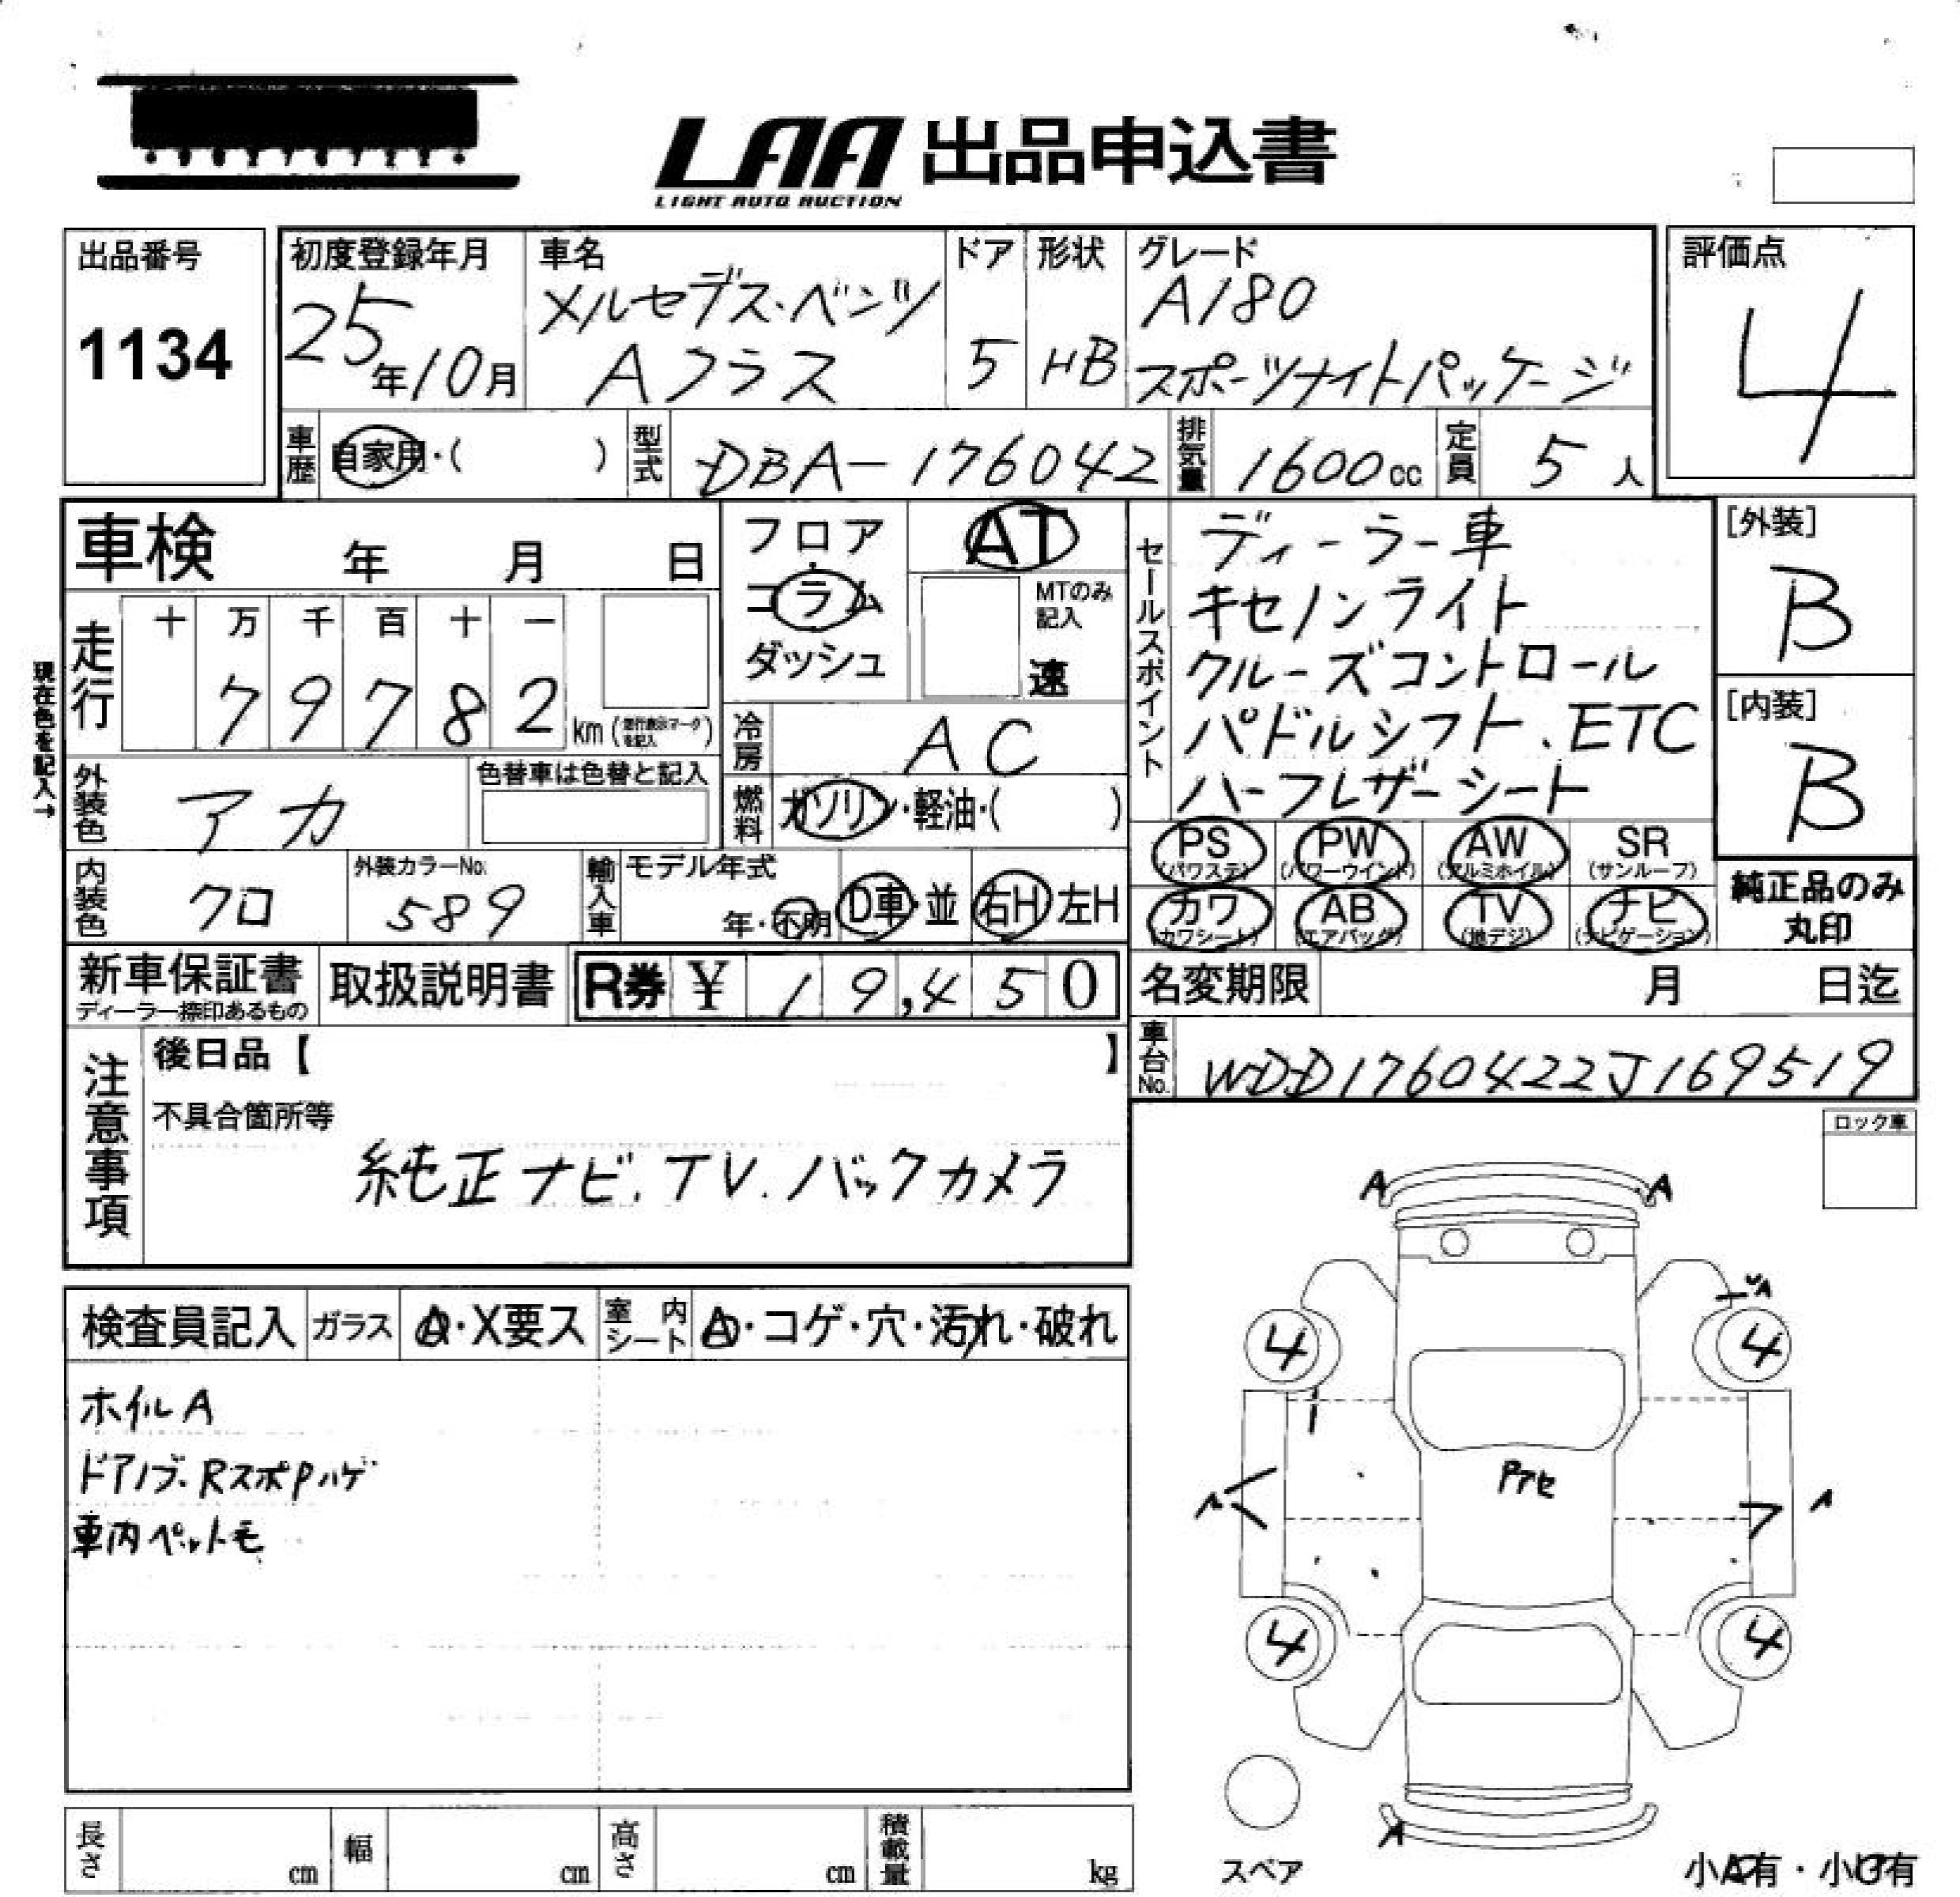 LAA 出品申込書
LIGHT AUTO AUCTION
出品番号
1134
初度登録年月
25年10月
車名
メルセデス・ベンツ
Aクラス
ドア
5
形状
HB
グレード
A180
スポーツナイトパッケージ
評価点
4
車歴 自家用・( )
型式 DBA-176042
排気量 1600cc
定員 5人
車検 年 月 日
現在色を記入→
走行
十 万 千 百 十 一
7 9 7 8 2 km (走行表示マークを記入)
フロア
コラム
ダッシュ
AT
MTのみ
記入
速
冷房 AC
燃料 ガソリン・軽油・( )
外装色 アカ
色替車は色替と記入
内装色 クロ
外装カラーNo.
589
輸入車
モデル年式
年・不明
D車・並
右H 左H
セールスポイント
ディーラー車
キセノンライト
クルーズコントロール
パドルシフト、ETC
ハーフレザーシート
[外装]
B
[内装]
B
PS (パワステ)
PW (パワーウインド)
AW (アルミホイル)
SR (サンルーフ)
カワ (カワシート)
AB (エアバッグ)
TV (地デジ)
ナビ (ナビゲーション)
純正品のみ
丸印
新車保証書
ディーラー捺印あるもの
取扱説明書
R券 ¥ 19,450
名変期限 月 日迄
車台No. WDD1760422J169519
注意事項
後日品【 】
不具合箇所等
純正ナビ、TV、バックカメラ
ロック車
検査員記入
ガラス A・X要ス
室内シート A・コゲ・穴・汚れ・破れ
ホイルA
ドアノブ、RスポPハゲ
車内ペット毛
A A
4 4
Pアセ
A
4 4
A
スペア
小A有・小U有
長さ cm
幅 cm
高さ cm
積載量 kg